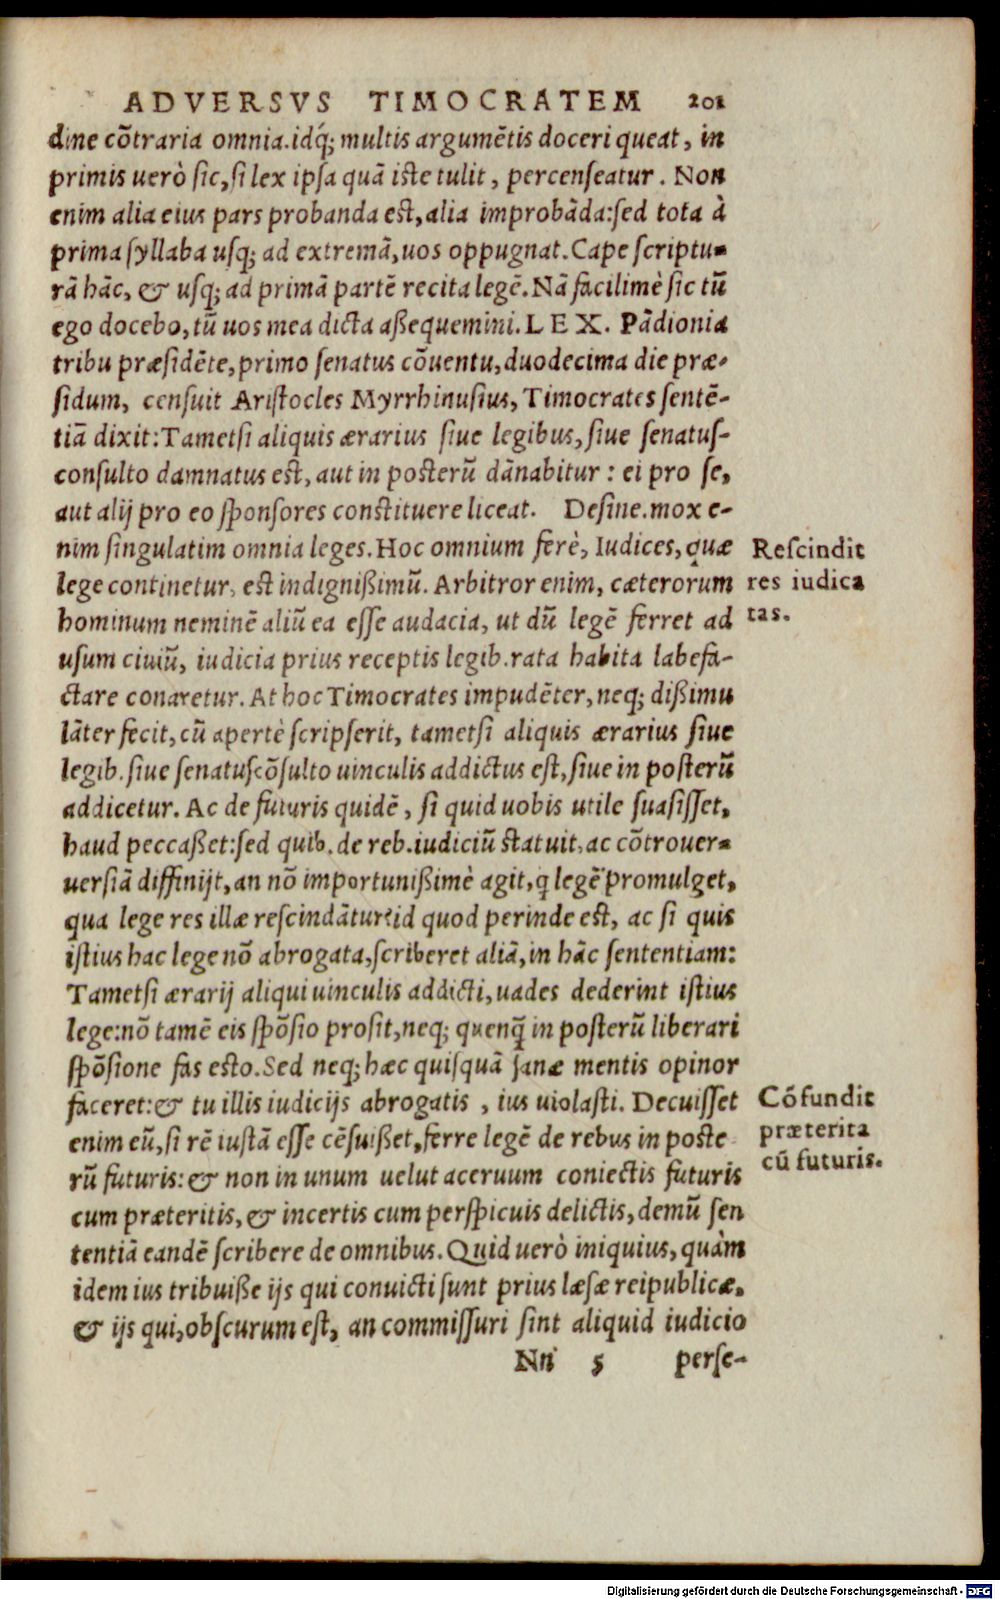 ADVERSVS TIMOCRATEM 201
dine cõtraria omnia.idq́; multis argumẽtis doceri queat, in
primis uerò sic, si lex ipsa quã iste tulit, percenseatur. Non
enim alia eius pars probanda est, alia improbãda: sed tota à
prima syllaba usq; ad extremã, uos oppugnat. Cape scriptu-
rã hãc, & usq; ad primã partẽ recita legẽ. Nã facilimè sic tũ
ego docebo, tũ uos mea dicta aßequemini. LEX. Pãdionia
tribu præsidẽte, primo senatus cõuentu, duodecima die præ-
sidum, censuit Aristocles Myrrhinusius, Timocrates sentẽ-
tiã dixit: Tametsi aliquis ærarius siue legibus, siue senatus-
consulto damnatus est, aut in posterũ dãnabitur: ei pro se,
aut alij pro eo sponsores constituere liceat. Desine. mox e-
nim singulatim omnia leges. Hoc omnium ferè, Iudices, quæ
lege continetur, est indignißimũ. Arbitror enim, cæterorum
hominum neminẽ aliũ ea esse audacia, ut dũ legẽ ferret ad
usum ciuiũ, iudicia prius receptis legib. rata habita labefa-
ctare conaretur. At hoc Timocrates impudẽter, neq; dißimu
lãter fecit, cũ apertè scripserit, tametsi aliquis ærarius siue
legib. siue senatuscõsulto uinculis addictus est, siue in posterũ
addicetur. Ac de futuris quidẽ, si quid uobis utile suasisset,
haud peccaßet: sed quib. de reb. iudiciũ statuit, ac cõtrouer-
uersiã diffinijt, an nõ importunißimè agit, q legẽ promulget,
qua lege res illæ rescindãtur? id quod perinde est, ac si quis
istius hac lege nõ abrogata, scriberet aliã, in hãc sententiam:
Tametsi ærarij aliqui uinculis addicti, uades dederint istius
lege: nõ tamẽ eis spõsio prosit, neq; quenq̃ in posterũ liberari
spõsione fas esto. Sed neq; hæc quisquã sanæ mentis opinor
faceret: & tu illis iudicijs abrogatis, ius uiolasti. Decuisset
enim eũ, si rẽ iustã esse cẽsuißet, ferre legẽ de rebus in poste
rũ futuris: & non in unum uelut aceruum coniectis futuris
cum præteritis, & incertis cum perspicuis delictis, demũ sen
tentiã eandẽ scribere de omnibus. Quid uerò iniquius, quàm
idem ius tribuiße ijs qui conuicti sunt prius læsæ reipublicæ,
& ijs qui, obscurum est, an commissuri sint aliquid iudicio
Nn 5 perse-
Rescindit
res iudica
tas.
Cõfundit
præterita
cũ futuris.
Digitalisierung gefördert durch die Deutsche Forschungsgemeinschaft - DFG